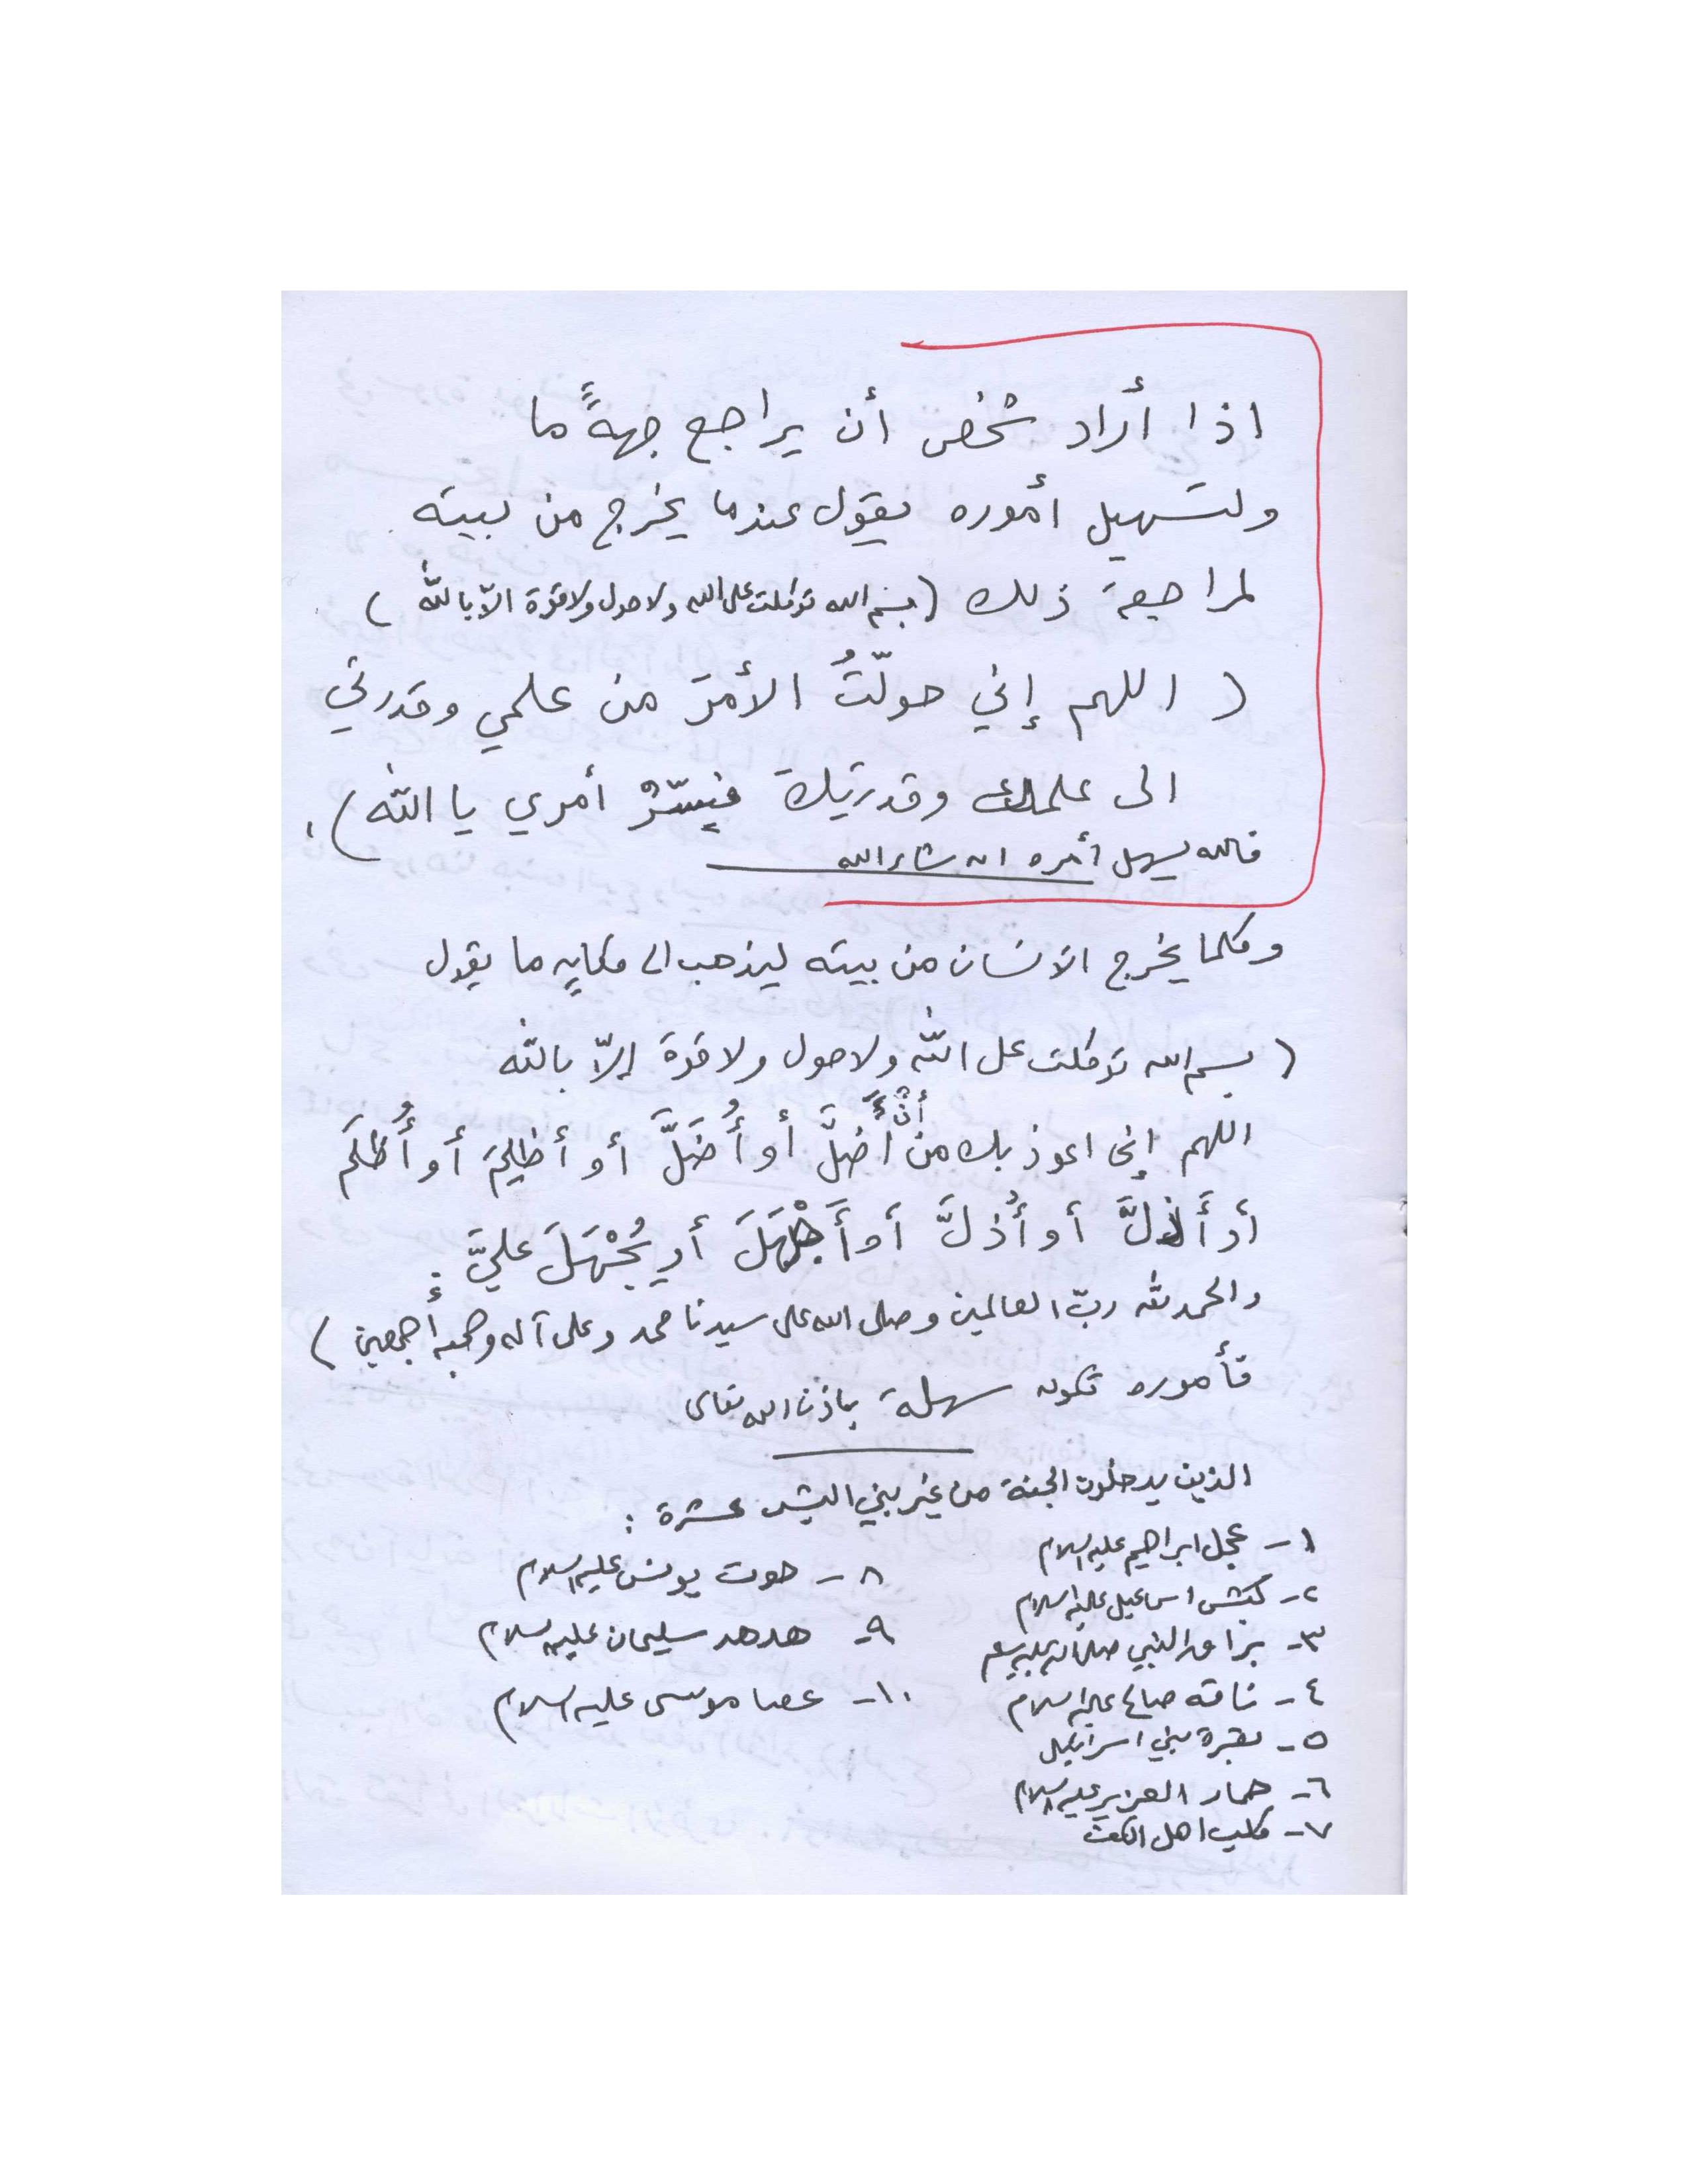 اذا أراد شخص أن يراجع جهةً ما
ولتسهيل أموره يقول عندما يخرج من بيته
لمراجعة ذلك (بسم الله توكلت على الله ولا حول ولا قوة الاّ بالله)
( اللهم إني حولّتُ الأمرَ من علمي وقدرتي
الى علمك وقدرتك فيسّرْ أمري يا الله ).
فالله يسهل أمره ان شاء الله
وكلما يخرج الانسان من بيته ليذهب الى مكانٍ ما يقول
( بسم الله توكلت على الله ولا حول ولا قوة إلاّ بالله
اللهم إني اعوذ بك من أنْ أَضلَّ أو أُضَلَّ أو أظلِمَ أو أُظلَم
أو أَذلَّ أو أُذلَّ أو أَجْهَلَ أو يُجْهَلَ عليَّ .
والحمد لله ربّ العالمين وصلى الله على سيدنا محمد وعلى آله وصحبه أجمعين )
فأموره تكون سهلة بإذن الله تعالى
الذين يدخلون الجنة من غير بني البشر عشرة :
١- عجل ابراهيم عليه السلام
٢- كبش اسماعيل عليه السلام
٣- براق النبي صلى الله عليه وسلم
٤- ناقة صالح عليه السلام
٥- بقرة بني اسرائيل
٦- حمار العزير عليه السلام
٧- كلب اهل الكهف
٨- حوت يونس عليه السلام
٩- هدهد سليمان عليه السلام
١٠- عصا موسى عليه السلام